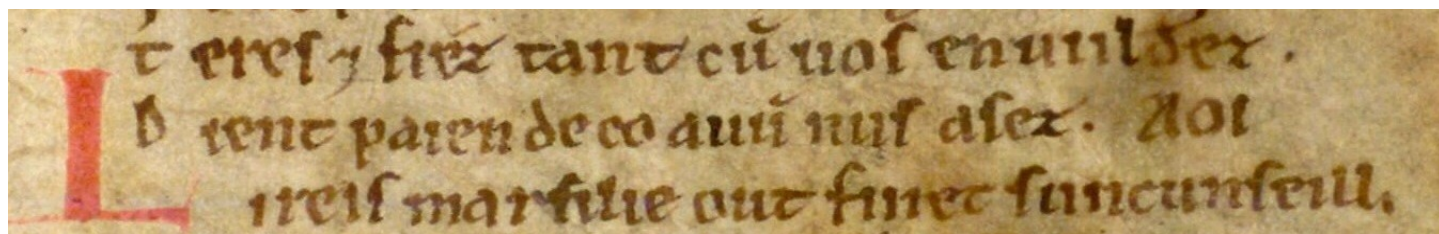 T eres ⁊ fiez tant cū uos en uuldez.
D ient paien de co auū nus asez. Aoi
L ireis marsilie out finet suncunseill.